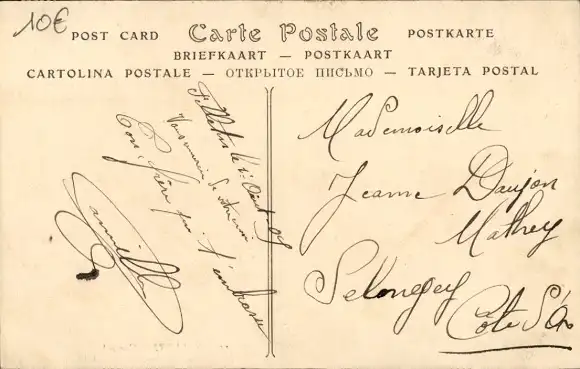 10€
POST CARD Carte Postale POSTKARTE
BRIEFKAART — POSTKAART
CARTOLINA POSTALE — ОТКРЫТОЕ ПИСЬМО — TARJETA POSTAL
le 1er Août 09
Ton frère qui t'embrasse
Camille
Mademoiselle
Jeanne Daujon
Mathey
Selongey
Côte d'Or